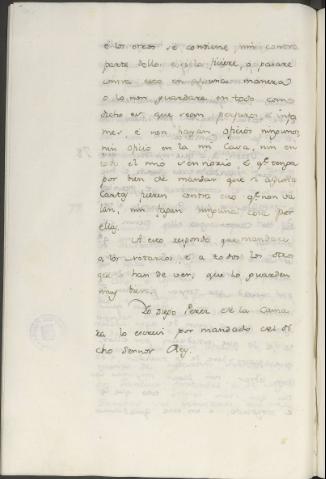 é los otros se contiene, nin contra
parte dello é si lo ficiere, o pasare
contra esto en alguna manera
o lo non guardare en todo como
dicho es que sean perjuros é infa
mes, é non hayan oficios ningunos
nin oficio en la mi Casa, nin en
todo el mio Sennorio é qe tenga
por bien de mandar que si alguna
Cartas fueren contra eso qe non va
lan, nin fagan ninguna cosa por
ellas.
A esto respondo que mandare
a los notarios, é a todos los otros
que han de ver, que lo guarden
muy bien.
Yo Diego Perez de la Cama
ra lo escrevi por mandado del di
cho Sennor Rey.